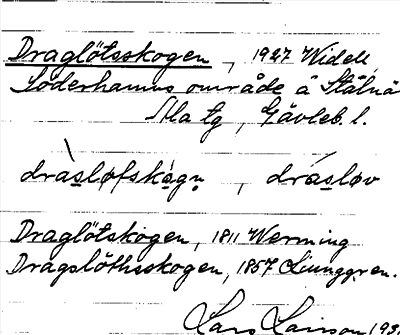 Draglötsskogen, 1927 Widell,
Söderhamns område å Stålnä
Ala tg, Gävleb. l.
dràsløfskògn, drásløv
Draglötskogen, 1811 Werming
Dragslöthsskogen, 1857 Ljunggren.
Lars Larsson 193